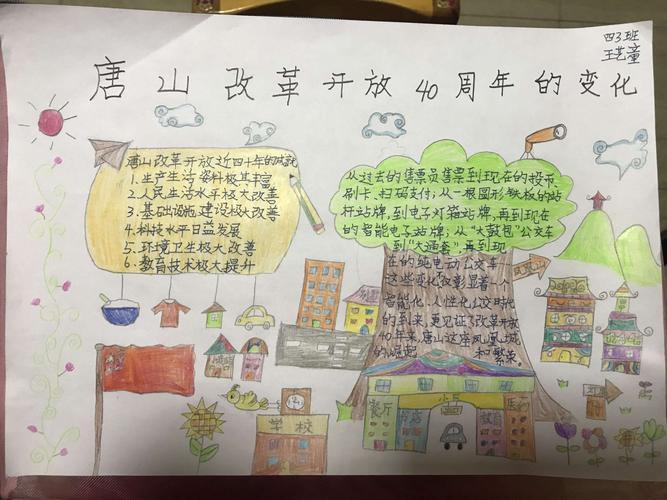 四3班
王艺童
唐山改革开放40周年的变化
唐山改革开放近四十年的成就
1.生产生活资料极其丰富
2.人民生活水平极大改善
3.基础出施建设极大改善
4.科技水平日益发展
5.环境卫生极大改善
6.教育技术极大提升
从过去的售票员售票到现在的投币、
刷卡、扫码支付;从一根圆形铁板的站
杆站牌,到电子灯箱站牌,再到现在
的智能电子站牌;从“大鼓包”公交车
到“大通套”,再到现
在的纯电动公交车
这些变化都彰显着一个
智能化、人性化公交时代
的到来,更见证了改革开放
40年来唐山这座凤凰城
的崛起 和繁荣。
学校
餐厅
书店
小区
教育
医疗